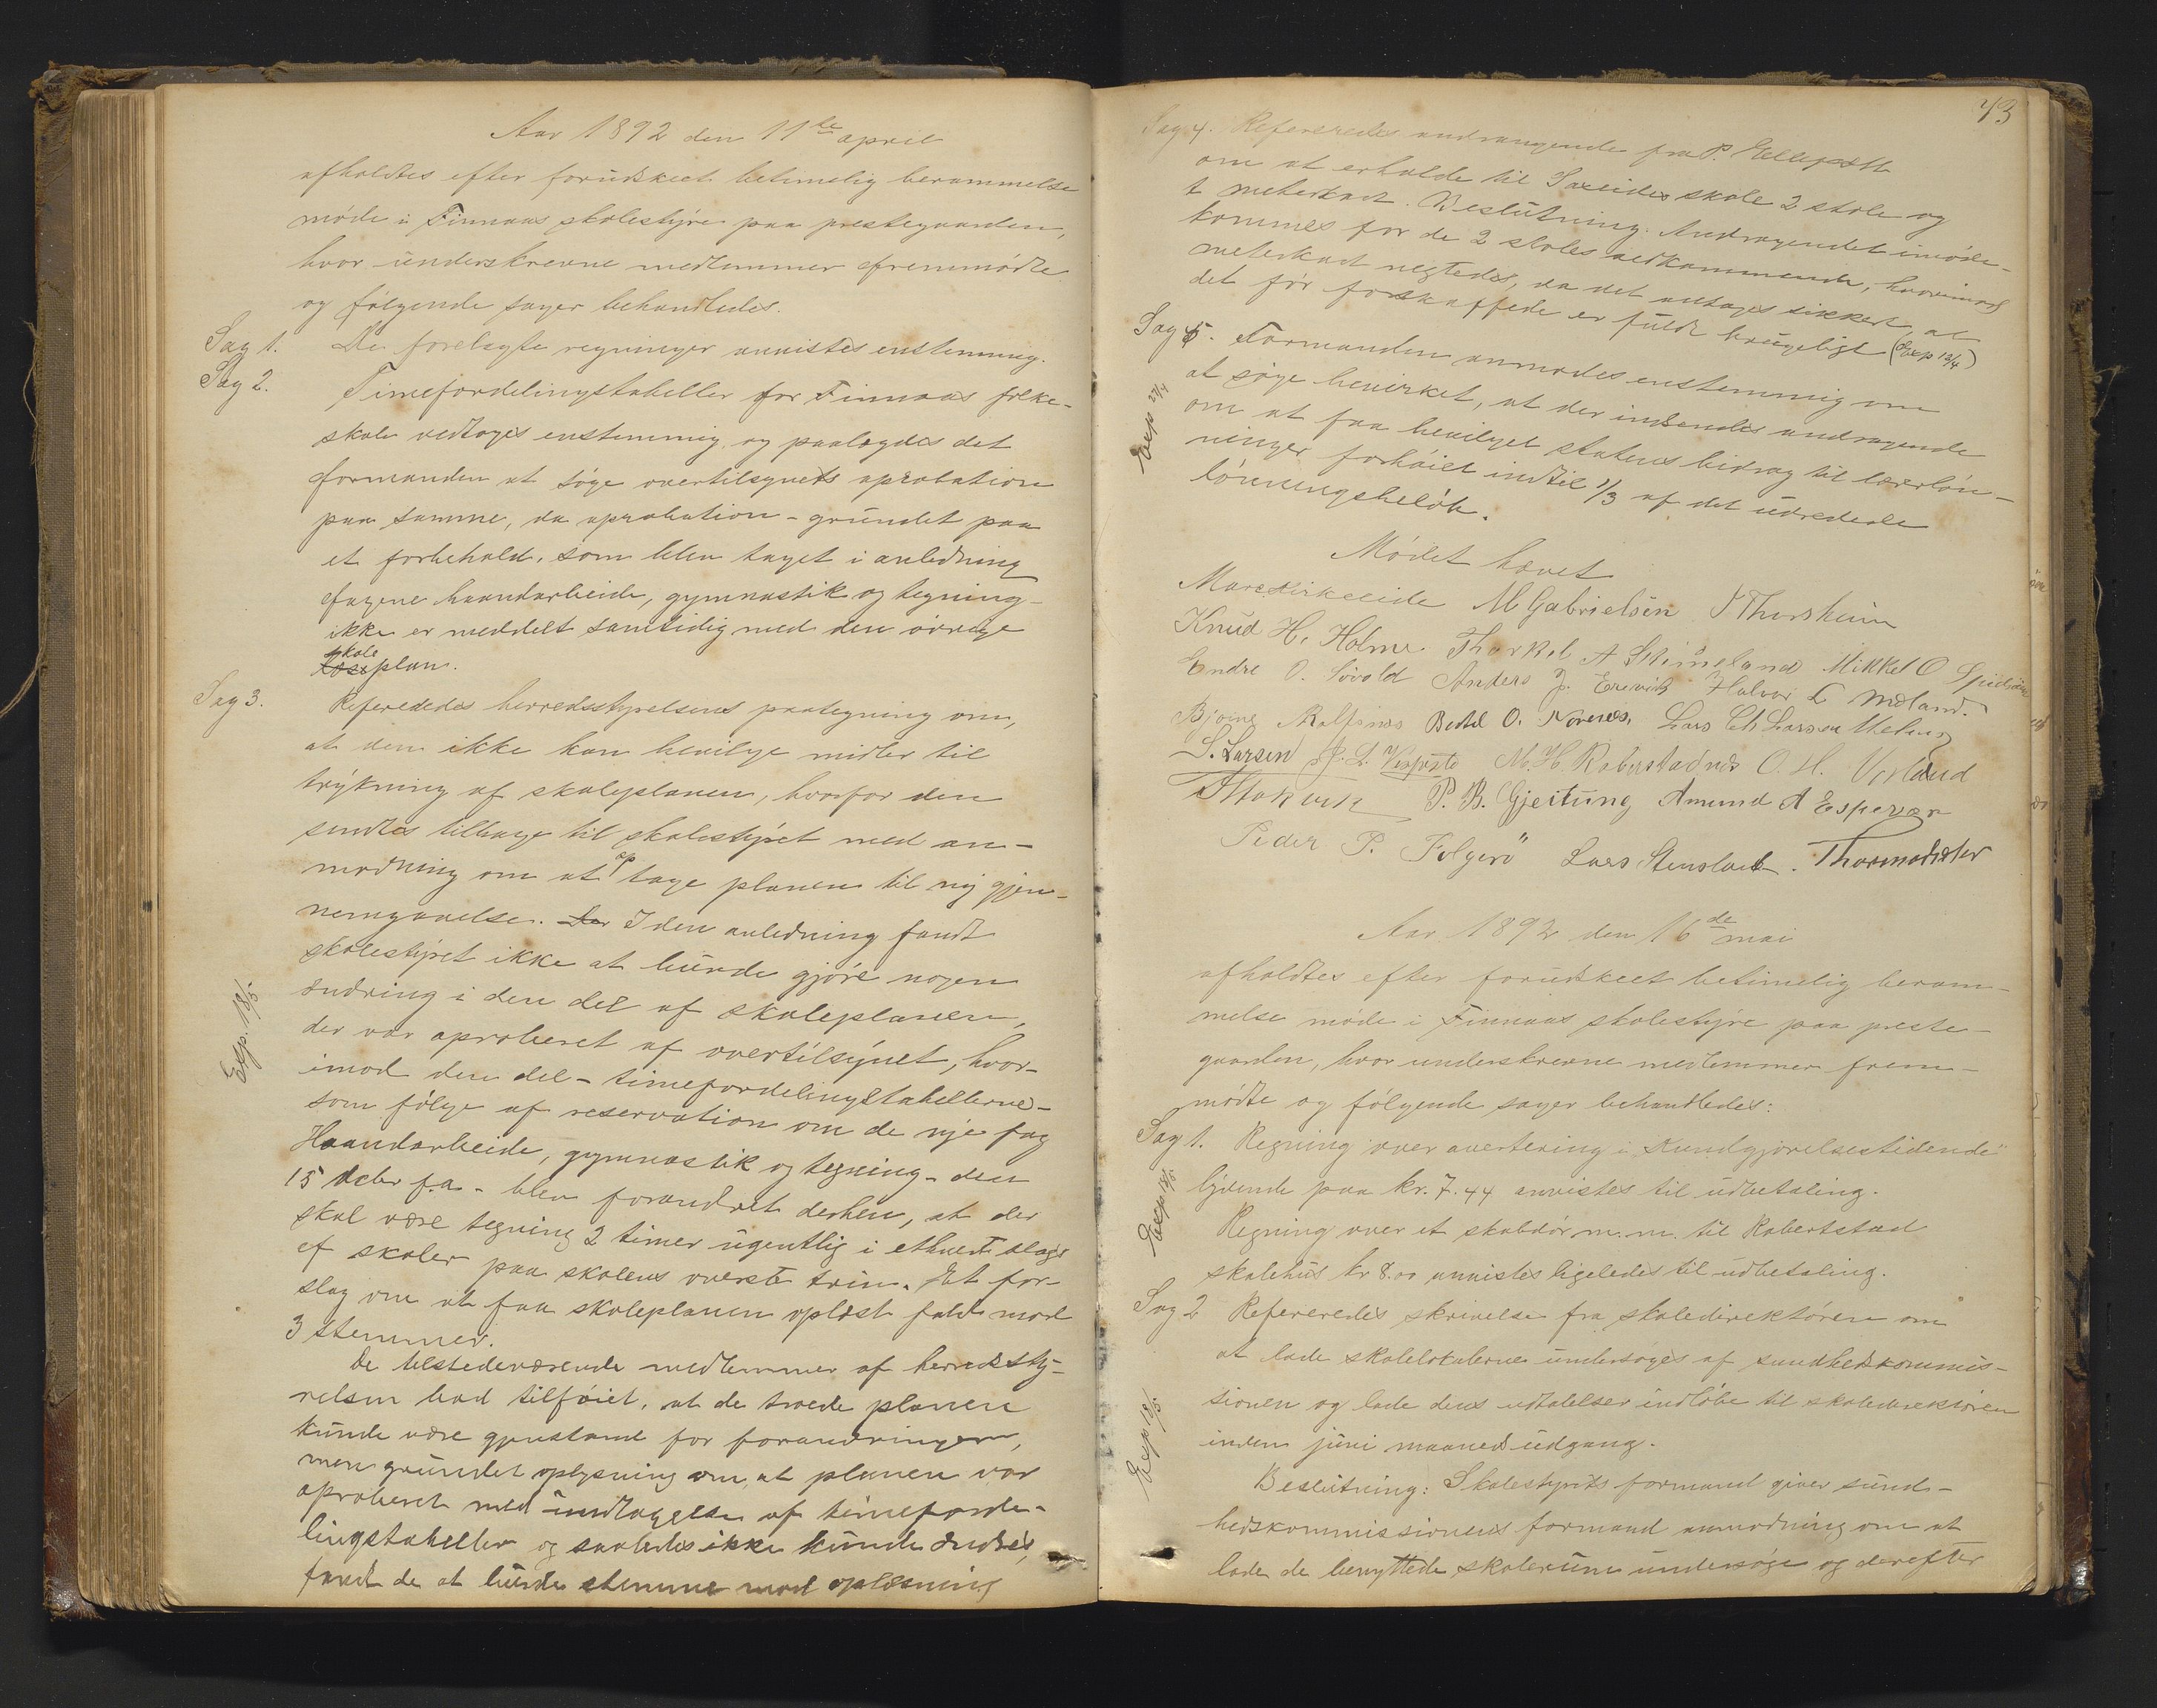 Aar 1892 den 11te april
afholdtes efter forudskeet betimelig berammelse
møde i Finnaas skolestyre paa prestegaarden,
hvor underskrevne medlemmer fremmødte
og følgende sager behandledes.
Sag 1. De forelagte regninger anvistes enstemmig.
Sag 2. Timefordelingstabeller for Finnaas folke-
skole vedtoges enstemmig og paalagdes det
formanden at søge overtilsynets aprobation
paa samme, da aprobation - grundet paa
et forbehold, som blev taget i anledning
fagene haandarbeide, gymnastik og tegning -
ikke er meddelt samtidig med den øvrige
skole
læseplan.
Sag 3. Refereredes herredsstyrelsens paategning om,
at den ikke kan bevilge midler til
trykning af skoleplanen, hvorfor den
sendtes tilbage til skolestyret med an-
modning om at optage planen til ny gjen-
nemgaaelse. Der I den anledning fandt
skolestyret ikke at burde gjøre nogen
ændring i den del af skoleplanen,
der var aproberet af overtilsynet, hvor-
imod den del - timefordelingstabellerne -
som følge af reservation om de nye fag
Haandarbeide, gymnastik og tegning - den
15 decbr f.a. - blev forandret derhen, at der
skal være tegning 2 timer ugentlig i ethvert slags
af skoler paa skolens øverste trin. Et for-
slag om at faa skoleplanen oplæst faldt mod
3 stemmer.
Exp. 18/5
De tilstedeværende medlemmer af herredssty-
relsen bad tilføiet, at de troede planen
kunde være gjenstand for forandringer,
men grundet oplysning om, at planen var
aproberet med undtagelse af timeforde-
lingstabeller og saaledes ikke kunde ændres,
fandt de at burde stemme mod oplæsning
73
Sag 4. Refereredes andragende fra P.
om at erholde til Sæeides skole 2 stole og
1 meterkart. Beslutning: Andragendet imøde-
kommes for de 2 stoles vedkommende, hvorimod
meterkart negtedes, da det antages sikkert, at
det før forskaffede er fuldt brugeligt (Exp 12/4)
Sag 5. Formanden anmodes enstemmig om
at søge bevirket, at der indsendes andragende
om at faa bevilget statens bidrag til lærerløn-
ninger forhøiet indtil 1/3 af det udredede
lønningsbeløb.
Exp 27/4
Mødet hævet
M Gabrielsen J Thorsheim
Knud H. Holme. Thorkel A Stimeland Mikkel O
Endre O. Søvold Anders J. Erevik Halvor L Mæland.
Bertel O. Nornes, Lars Ch Larsen
S. Larsen M. H. Robertstadnes O. H.
P. B. Gjeitung Amund A Espevær
Peder P. Folgerö Lars Stensland. Thormodsæter
Aar 1892 den 16de mai
afholdtes efter forudskeet betimelig beram-
melse møde i Finnaas skolestyre paa preste-
gaarden, hvor underskrevne medlemmer frem-
mødte og følgende sager behandledes:
Sag 1. Regning over avertering i "Kundgjørelsestidende"
lydende paa kr. 7.44 anvistes til udbetaling.
Exp 18/5
Regning over et skabdør m.m. til Robertstad
skolehus kr 8.00 anvistes ligeledes til udbetaling.
Sag 2 Refereredes skrivelse fra skoledirektøren om
at lade skolelokalerne undersøges af sundhedskommis-
sionen og lade dens udtalelser indløbe til skoledirektøren
inden juni maaneds udgang.
Exp 18/5.
Beslutning: Skolestyrets formand giver sund-
hedskommissionens formand anmodning om at
lade de benyttede skolerum undersøge og derefter